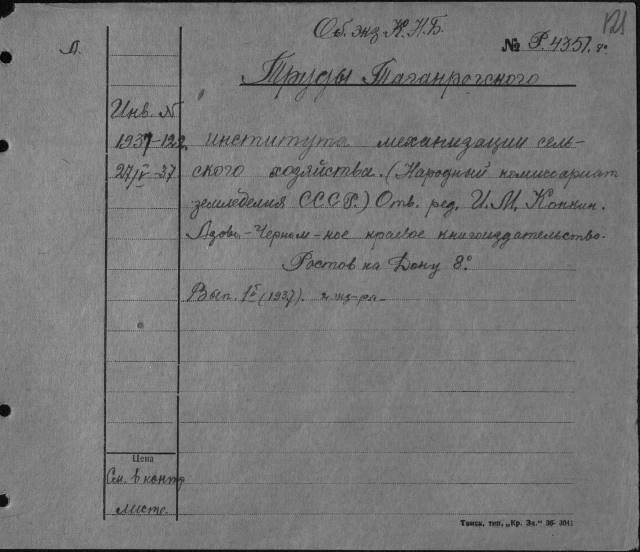 Об. экз К.Н.Б.
121
Л.
№ Р.4357. 8°
Труды Таганрогского
Инв. №
1937-122
27/IV-37
института механизации сель-
ского хозяйства. (Народный комиссариат
земледелия СССР.) Отв. ред. И.М.
Азово-Черном-ное краевое книгоиздательство.
Ростов на Дону 8°.
Вып. 1й (1937). 2 экз-ра
Цена
См. в контр
листе.
Тамск. тип. „Кр. Зн." 36-3041